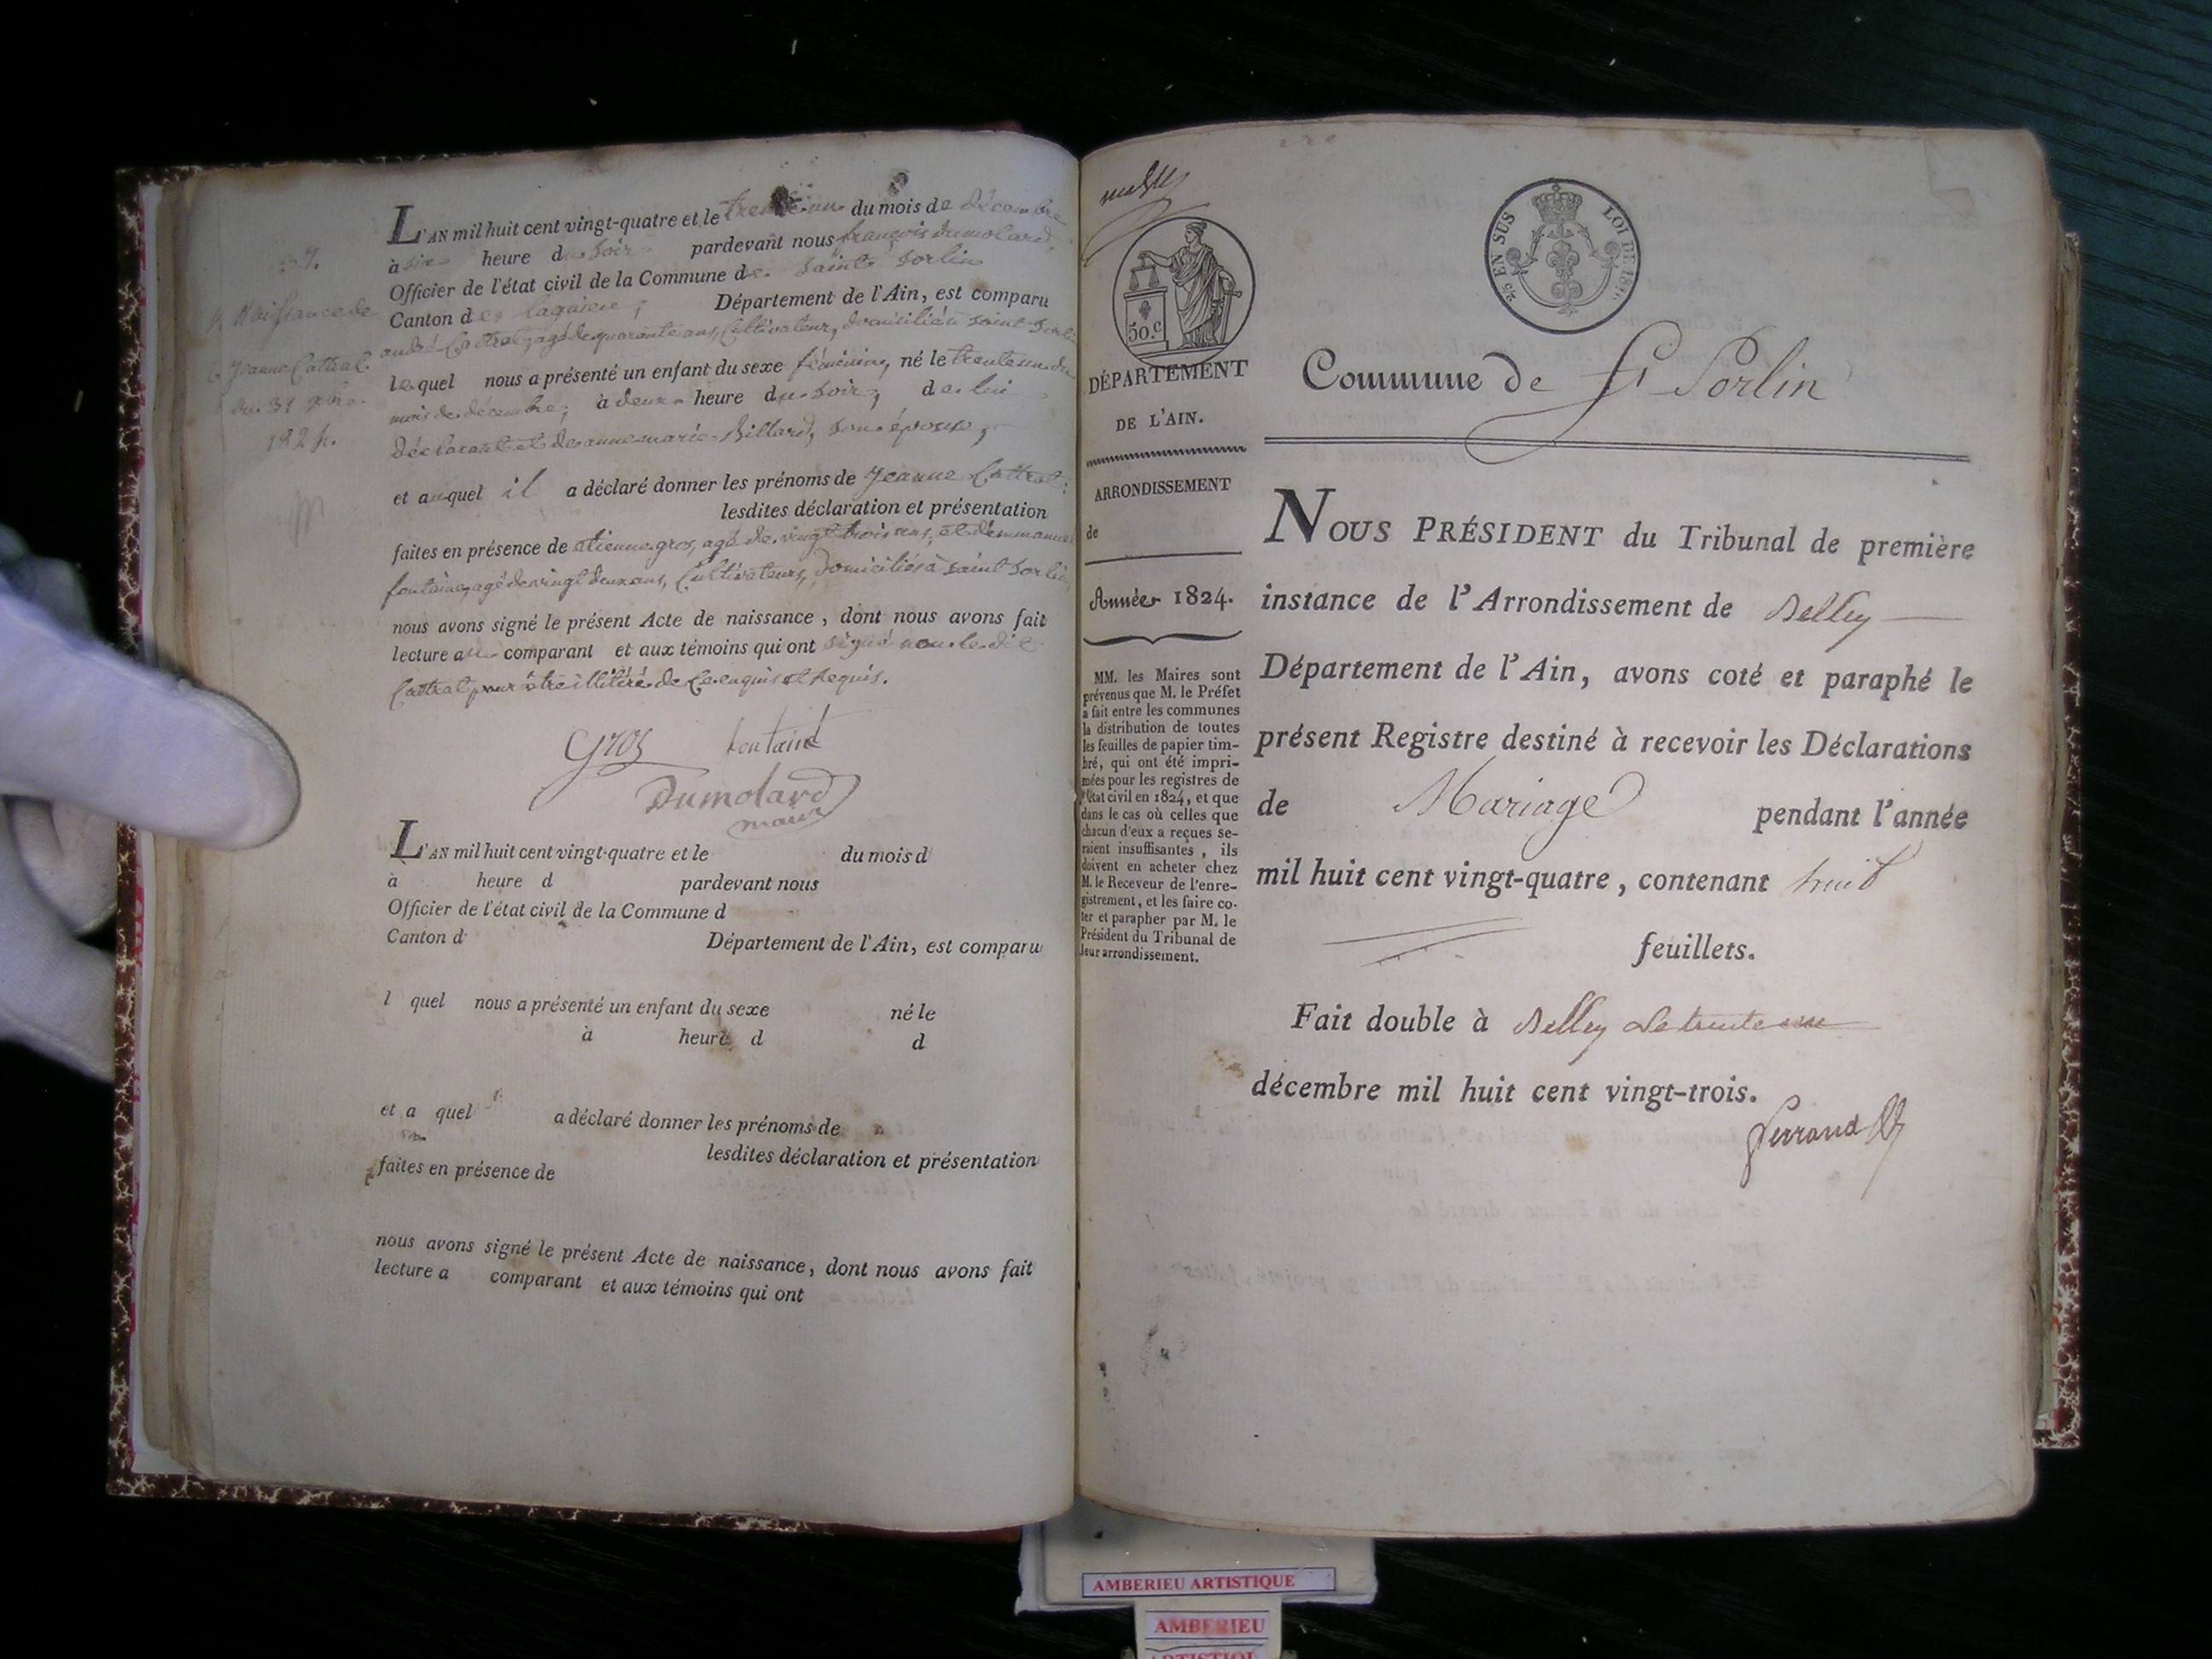 7.
Naissance de
Jeanne Cattral
du 31 Xbre
1824.
M
L'AN mil huit cent vingt-quatre et le trente un du mois de décembre
à six heure du soir pardevant nous françois dumolard,
Officier de l'état civil de la Commune de saint sorlin
Canton de lagnieu, Département de l'Ain, est comparu
andré Cattral, agé de quarante ans, Cultivateur, domicilié à saint Sorlin
lequel nous a présenté un enfant du sexe féminin, né le trente un du
mois de décembre, à deux heure du soir, de lui
déclarant et de anne marie Billard, son épouse,
et auquel il a déclaré donner les prénoms de Jeanne Cattral;
lesdites déclaration et présentation
faites en présence de etienne gros, agé de vingt trois ans, et d'emmanuel
fontaine, agé de vingt deux ans, Cultivateurs, domiciliés à saint Sorlin,
nous avons signé le présent Acte de naissance, dont nous avons fait
lecture au comparant et aux témoins qui ont signé non le dit
Cattral pour être illitéré de Ce enquis et Requis.
Gros fontaine
Dumolard
maire
L'AN mil huit cent vingt-quatre et le du mois d
à heure d pardevant nous
Officier de l'état civil de la Commune d
Canton d Département de l'Ain, est comparu
l quel nous a présenté un enfant du sexe né le
à heure d d
et a quel a déclaré donner les prénoms de
lesdites déclaration et présentation
faites en présence de
nous avons signé le présent Acte de naissance, dont nous avons fait
lecture a comparant et aux témoins qui ont
50.c
DÉPARTEMENT
DE L'AIN.
ARRONDISSEMENT
de
Année 1824.
MM. les Maires sont
prévenus que M. le Préfet
a fait entre les communes
la distribution de toutes
les feuilles de papier tim-
bré, qui ont été impri-
mées pour les registres de
l'état civil en 1824, et que
dans le cas où celles que
chacun d'eux a reçues se-
raient insuffisantes, ils
doivent en acheter chez
M. le Receveur de l'enre-
gistrement, et les faire co-
ter et parapher par M. le
Président du Tribunal de
leur arrondissement.
EN SUS LOI DE 1816
Commune de St Sorlin
NOUS PRÉSIDENT du Tribunal de première
instance de l'Arrondissement de Belley
Département de l'Ain, avons coté et paraphé le
présent Registre destiné à recevoir les Déclarations
de Mariage pendant l'année
mil huit cent vingt-quatre, contenant huit
feuillets.
Fait double à Belley le trente un
décembre mil huit cent vingt-trois.
AMBERIEU ARTISTIQUE
AMBERIEU
ARTISTIQUE